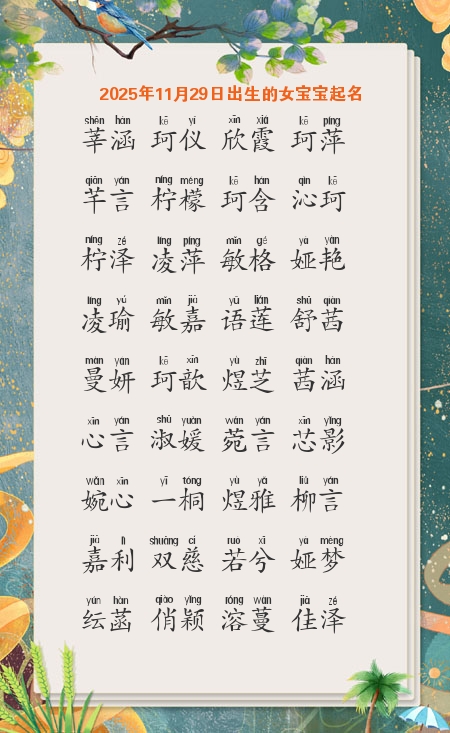 2025年11月29日出生的女宝宝起名
shēn hàn kē yí xīn xiá kē píng
莘涵 珂仪 欣霞 珂萍
qiān yán níng méng kē hán qìn kē
芊言 柠檬 珂含 沁珂
níng zé líng píng mǐn gé yà yàn
柠泽 凌萍 敏格 娅艳
líng yú mǐn jiā yǔ lián shū qiàn
凌瑜 敏嘉 语莲 舒茜
màn yán kē xīn yù zhī qiàn hán
曼妍 珂歆 煜芝 茜涵
xīn yán shū yuàn wǎn yán xīn yǐng
心言 淑媛 菀言 芯影
wǎn xīn yī tóng yù yǎ liǔ yán
婉心 一桐 煜雅 柳言
jiā lì shuāng cí ruò xī yà mèng
嘉利 双慈 若兮 娅梦
yún hàn qiào yǐng róng wàn jiā zé
纭菡 俏颖 溶蔓 佳泽